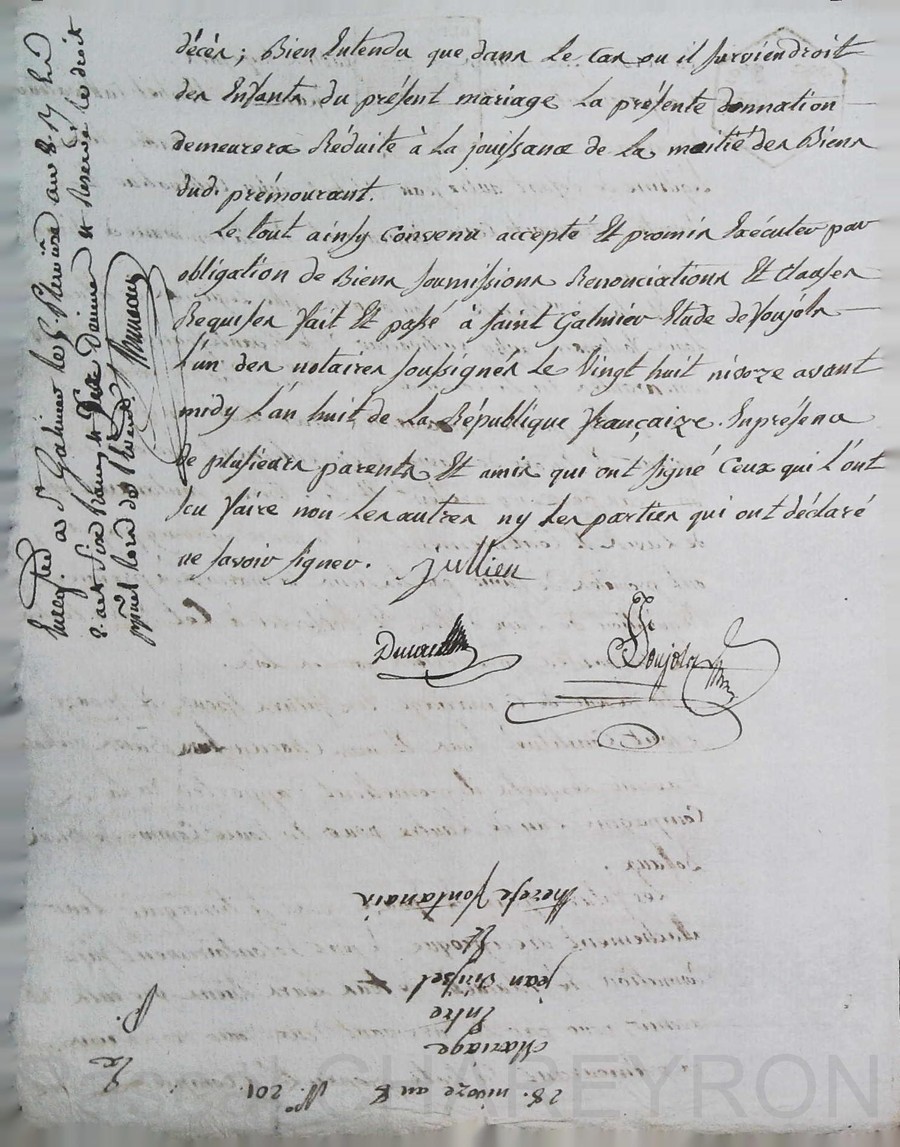 décès ; Bien Entendu que dans Le Cas ou il surviendroit
des Enfants du présent mariage La présente donnation
demeurera Réduite à La jouissance de La moitié des Biens
dud. prémourant.
Le tout ainsy Convenu accepté Et promis Exécuter par
obligation de Biens soumissions Renonciations Et Clauses
Requises fait Et passé à saint Galmier Etude de Poujols
L'un des notaires soussignés Le Vingt huit nivoze avant
midy L'an huit de La République française. En présence
de plusieurs parents Et amis qui ont signé Ceux qui L'ont
su faire non Les autres ny Les parties qui ont déclaré
ne savoir signer. Jullien
Poujols
Enreg. à St Galmier le 5 pluviôse an 8. Rd
et Reservé le droit
28. nivoze an 8 No. 201
Mariage
Entre
jean
Et
therese fontanais
Ex
CHAREYRON